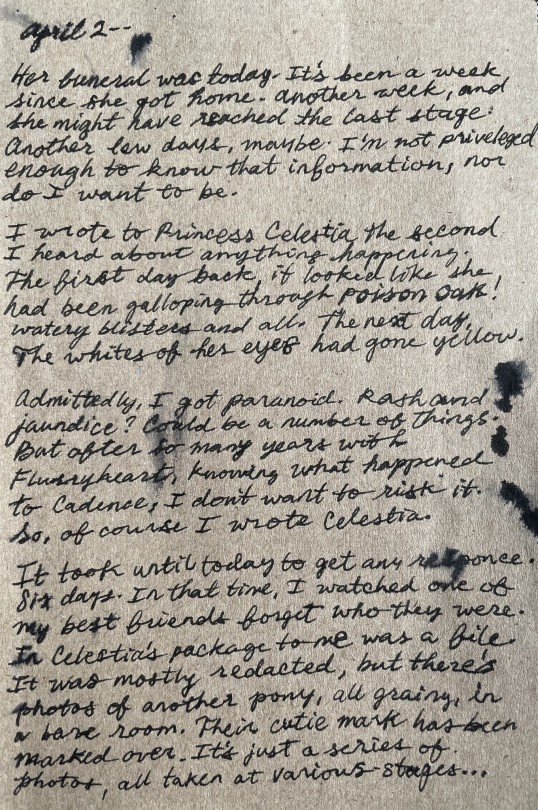 april 2--
Her funeral was today. It's been a week
since she got home. another week, and
she might have reached the last stage.
Another few days, maybe. I'm not priveleged
enough to know that information, nor
do I want to be.
I wrote to Princess Celestia the second
I heard about anything happening.
The first day back, it looked like she
had been galloping through poison oak!
watery blisters and all. The next day,
The whites of her eyes had gone yellow.
Admittedly, I got paranoid. Rash and
jaundice? Could be a number of things.
But after so many years with
Flurryheart, knowing what happened
to Cadence, I don't want to risk it.
So, of course I wrote Celestia.
It took until today to get any responce.
Six days. In that time, I watched one of
my best friends forget who they were.
In Celestia's package to me was a file.
It was mostly redacted, but there's
photos of another pony, all grainy, in
a bare room. Their cutie mark has been
marked over. It's just a series of
photos, all taken at various stages...